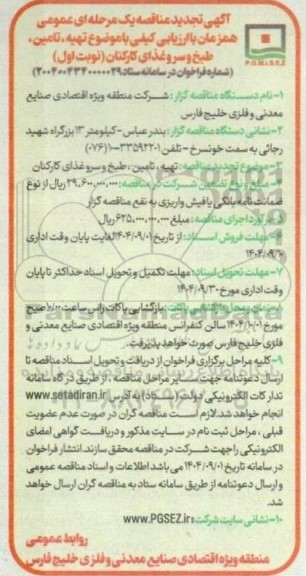 آگهی تجدید مناقصه یک مرحله ای عمومی
همزمان با ارزیابی کیفی با موضوع تهیه، تامین،
طبخ و سرو غذای کارکنان (نوبت اول)
(شماره فراخوان در سامانه ستاد ۲۰۰۴۰۰۴۳۴۰۰۰۰۰۲۹)
P.G.M.I.S.E.Z
۱- نام دستگاه مناقصه گزار: شرکت منطقه ویژه اقتصادی صنایع
معدنی و فلزی خلیج فارس
۲- نشانی دستگاه مناقصه گزار: بندرعباس - کیلومتر ۱۳ بزرگراه شهید
رجائی به سمت خونسرخ - تلفن ۳۳۵۹۲۲۰۱-(۰۷۶)
۳- موضوع تجدید مناقصه: تهیه، تامین، طبخ و سرو غذای کارکنان
۴- مبلغ و نوع تضمین شرکت در مناقصه: ۲۹,۶۰۰,۰۰۰,۰۰۰ ریال از نوع
ضمانت نامه بانکی یا فیش واریزی به نفع مناقصه گزار
۵- برآورد اجرای مناقصه: مبلغ ۶۲۵,۰۰۰,۰۰۰,۰۰۰ ریال
۶- مهلت فروش اسناد: از تاریخ ۱۴۰۴/۰۹/۰۱ لغایت پایان وقت اداری
۷- مهلت تحویل اسناد: مهلت تکمیل و تحویل اسناد حداکثر تا پایان
وقت اداری مورخ ۱۴۰۴/۰۹/۳۰
۸- زمان و محل بازگشایی پاکات: بازگشایی پاکات راس ساعت ۱۰:۰۰ صبح
مورخ ۱۴۰۴/۱۰/۰۱ سالن کنفرانس منطقه ویژه اقتصادی صنایع معدنی و
فلزی خلیج فارس صورت خواهد پذیرفت
۹- کلیه مراحل برگزاری فراخوان از دریافت و تحویل اسناد مناقصه تا
ارسال دعوتنامه جهت سایر مراحل مناقصه، از طریق درگاه سامانه
تدارکات الکترونیکی دولت (ستاد) به آدرس www.setadiran.ir
انجام خواهد شد. لازم است مناقصه گران در صورت عدم عضویت
قبلی، مراحل ثبت نام در سایت مذکور و دریافت گواهی امضای
الکترونیکی را جهت شرکت در مناقصه محقق سازند. انتشار فراخوان
در سامانه تاریخ ۱۴۰۴/۰۹/۰۱ می باشد اطلاعات و اسناد مناقصه عمومی
و ارسال دعوتنامه از طریق سامانه ستاد به مناقصه گران ارسال خواهد
شد.
۱۰- نشانی سایت شرکت: www.PGSEZ.ir
روابط عمومی
منطقه ویژه اقتصادی صنایع معدنی و فلزی خلیج فارس